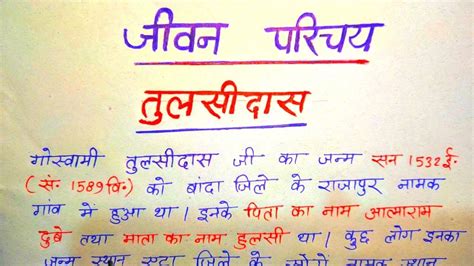 जीवन परिचय
तुलसीदास
गोस्वामी तुलसीदास जी का जन्म सन 1532 ई॰
(सं॰ 1589 वि॰) को बांदा जिले के राजापुर नामक
गांव मे हुआ था। इनके पिता का नाम आत्माराम
दुबे तथा माता का नाम हुलसी था। कुछ लोग इनका
जन्म स्थान एटा जिले के सोरों नामक स्थान